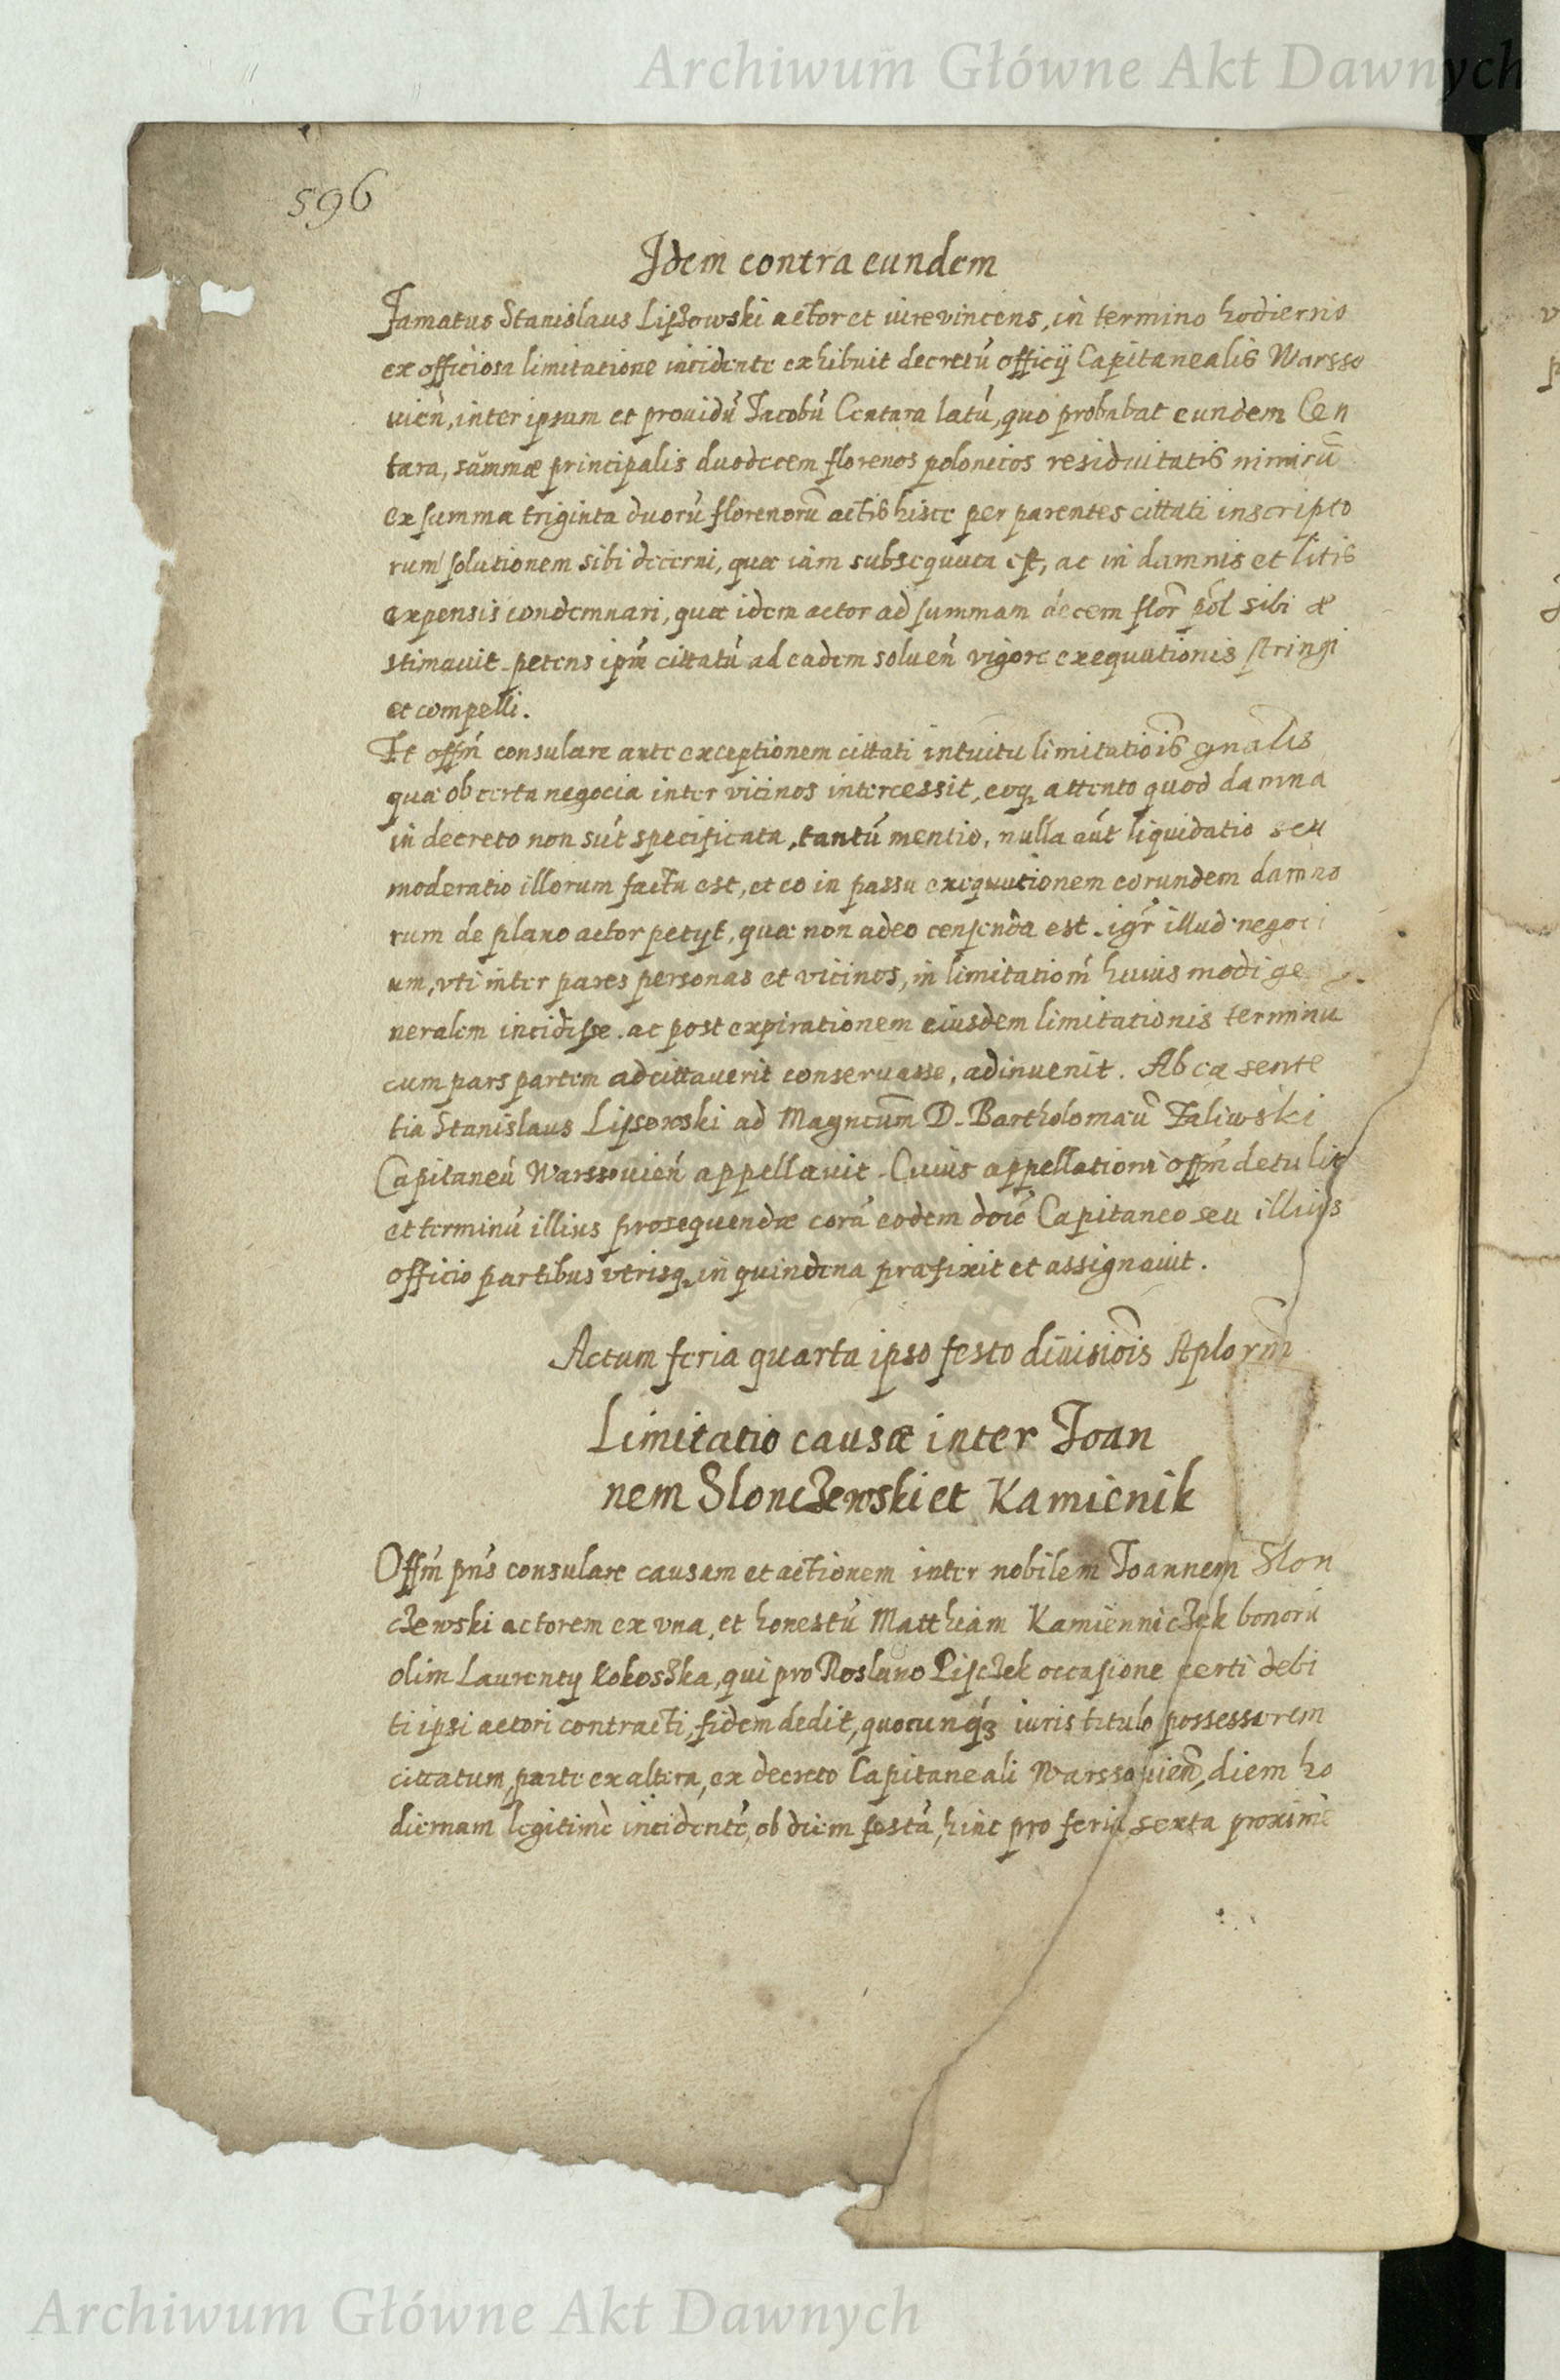 Archiwum Główne Akt Dawnych
596
Idem contra eundem
Famatus Stanislaus Lipsowski actor et iurevincens, in termino hodierno
ex officiosa limitatione incidente exhibuit decretū officij Capitanealis Warsso
vień, inter ipsum et prouidū Iacobū Centara latū, quo probabat eundem Cen
tara, summæ principalis duodecem florenos polonicos residuitatis nimirū
ex summa triginta duorū florenorū actis hisce per parentes cittati inscripto
rum solutionem sibi decerni, quæ iam subsequuta est, ac in damnis et litis
expensis condemnari, quæ idem actor ad summam decem flor pol sibi æ
stimauit petens ipm̄ cittatū ad eadem soluen̄ vigore exequutionis stringi
et compelli.
Et offm̄ consulare ante exceptionem cittati intuitu limitatiois gnalis
quæ ob certa negocia inter vicinos intercessit, eoq, attento quod damna
in decreto non sūt specificata, tantū mentio, nulla aūt liquidatio seu
moderatio illorum facta est, et eo in passu exequutionem eorundem damno
rum de plano actor petyt, quæ non adeo censenda est. igr̄ illud negoci
um, vti inter pares personas et vicinos, in limitatiom̄ huius modi ge
neralem incidisse. ac post expirationem eiusdem limitationis terminu
cum pars partem adcittauerit conseruasse, adinuenit. Ab ea sente
tia Stanislaus Lipsowski ad Magncum D. Bartholomæū Zaliwski
Capitaneū Warssouień appellauit. Cuius appellationi offm̄ detulit
et terminū illius prosequendæ corā eodem dōie Capitaneo seu illius
officio partibus vtrisq, in quindena præfixit et assignauit.
Actum feria quarta ipso festo diuisiois Aplorm
Limitatio causæ inter Ioan
nem Slonczewski et Kamienik
Offm̄ pn̄s consulare causam et actionem inter nobilem Ioannem Slon
czewski actorem ex vna, et honestū Matthiam Kamienniczek bonorū
olim Laurenty Kokoszka, qui pro Roslano Pisczek occasione certi debi
ti ipsi actori contracti, fidem dedit, quocunqʒ iuris titulo possessorem
cittatum, parte ex altera, ex decreto Capitaneali Warssouień, diem ho
diernam legitimè incidentē, ob diem festū, hinc pro feria sexta proximè
Archiwum Główne Akt Dawnych